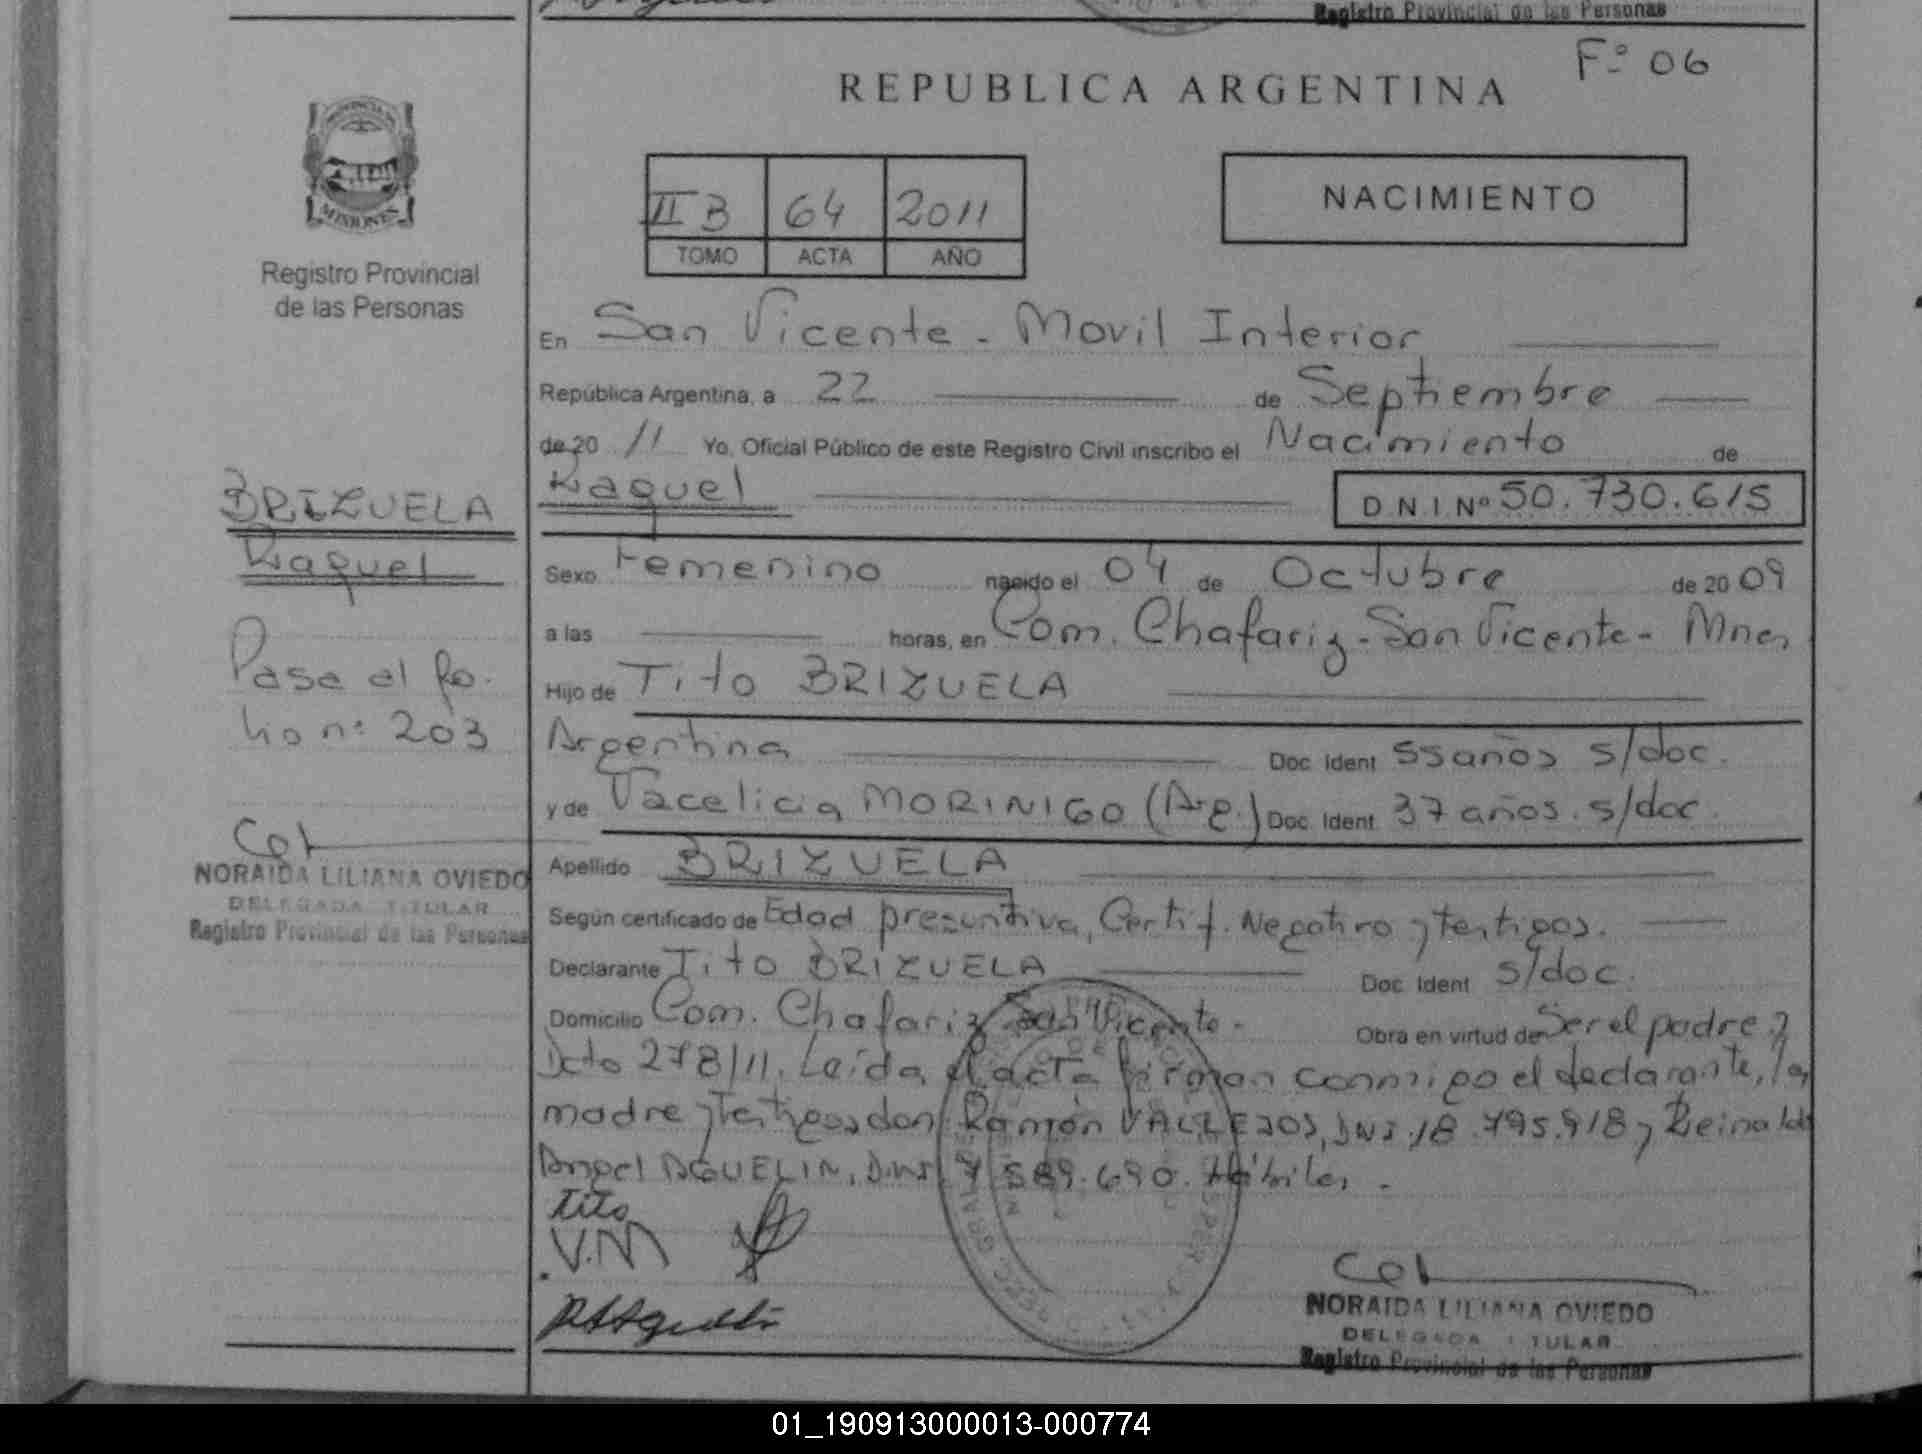 Registro Provincial de las Personas
Fº 06
REPUBLICA ARGENTINA
PROVINCIA DE
MISIONES
Registro Provincial
de las Personas
II B 64 2011
TOMO ACTA AÑO
NACIMIENTO
En San Vicente - Movil Interior
República Argentina, a 22 de Septiembre
de 20 11 Yo, Oficial Público de este Registro Civil inscribo el Nacimiento de
Raquel D.N.I. Nº 50.730.615
BRIZUELA
Raquel
Sexo Femenino nacido el 04 de Octubre de 20 09
a las horas, en Com. Chafariz - San Vicente - Mnes
Pasa al fo-
lio nº 203
Hijo de Tito BRIZUELA
Argentina Doc. Ident 55 años s/doc.
y de Vacelicia MORINIGO (Arg.) Doc. Ident. 37 años. s/doc.
NORAIDA LILIANA OVIEDO
DELEGADA TITULAR
Registro Provincial de las Personas
Apellido BRIZUELA
Según certificado de Edad presuntiva, Certif. Negativo y testigos.
Declarante Tito BRIZUELA Doc. Ident s/doc.
Domicilio Com. Chafariz San Vicente - Obra en virtud de Ser el padre y
Dcto 278/11. Leída el acta firman conmigo el declarante, la
madre y testigos don Ramón VALLEJOS, DNI. 18.795.918 y Reinaldo
Angel AGUELIN, D.N.I. 7.589.690. Hábiles. -
Tito
V.M
NORAIDA LILIANA OVIEDO
DELEGADA TITULAR
Registro Provincial de las Personas
01_190913000013-000774